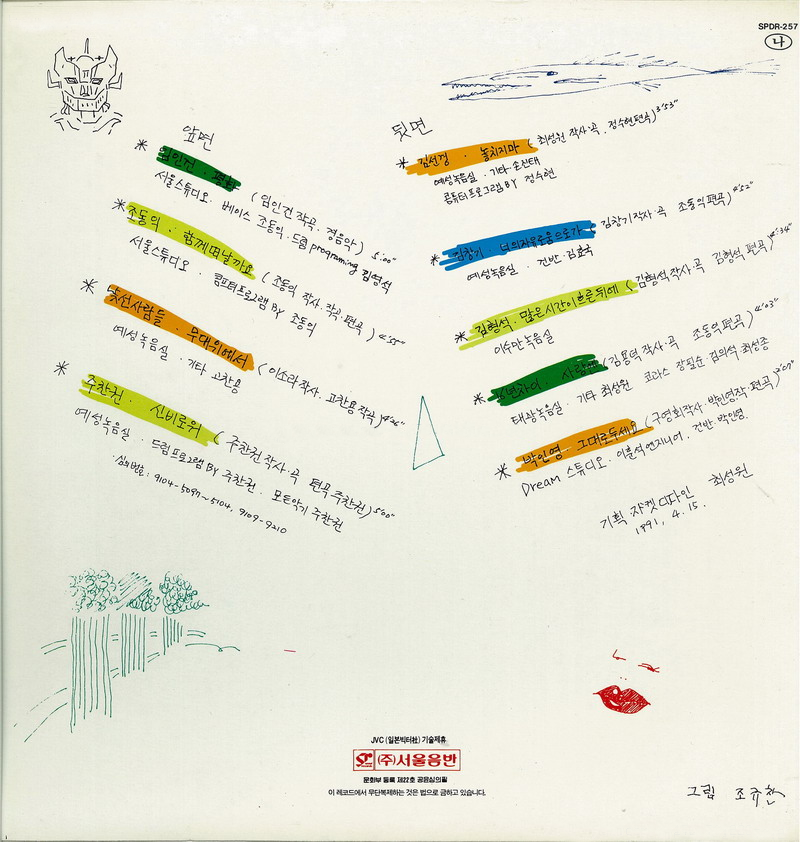 SPDR-257
나
앞면
* 임인건 · 평화 (임인건 작곡 · 경음악) 5'00"
서울스튜디오 · 베이스 조동익 · 드럼 programing 김영석
* 조동익 · 함께떠날까요 (조동익 작사·작곡·편곡) 4'50"
서울스튜디오 · 컴퓨터프로그램 By 조동익
* 낯선사람들 · 무대위에서 (이소라작사 · 고찬용작곡) 4'26"
예성녹음실 · 기타 고찬용
* 주찬권 · 신비로워 (주찬권 작사·곡 편곡 주찬권) 5'00"
예성녹음실 · 드럼프로그램 By 주찬권 · 모든악기 주찬권
심의번호 : 9104-5097~5104, 9109-9210
뒷면
* 김선경 · 놓치지마 (최성원 작사·곡 · 정수현편곡) 3'53"
예성녹음실 · 기타 손진태
콤퓨터프로그램 BY 정수현
* 김창기 · 너의자유로움으로가 (김창기작사·곡 조동익편곡) 4'52"
예성녹음실 · 건반 · 김효국
* 김형석 · 많은시간이흐른뒤에 (김형석작사·곡 김형석편곡) 4'34"
이수만녹음실
* 6년차이 · 사랑엔 (김용덕 작사·곡 조동익편곡) 4'03"
태광녹음실 · 기타 최성원 코라스 장필순·김의석·최성종
* 박인영 · 그대로두세요 (구영회작사·박인영작·편곡) 3'07"
Dream 스튜디오 · 이훈석엔지니어 · 건반·박인영
기획·쟈켓디자인 최성원
1991, 4. 15.
JVC (일본빅터社) 기술제휴
(주)서울음반
문화부 등록 제22호 공윤심의필
이 레코드에서 무단복제하는 것은 법으로 금하고 있습니다.
그림 조규찬